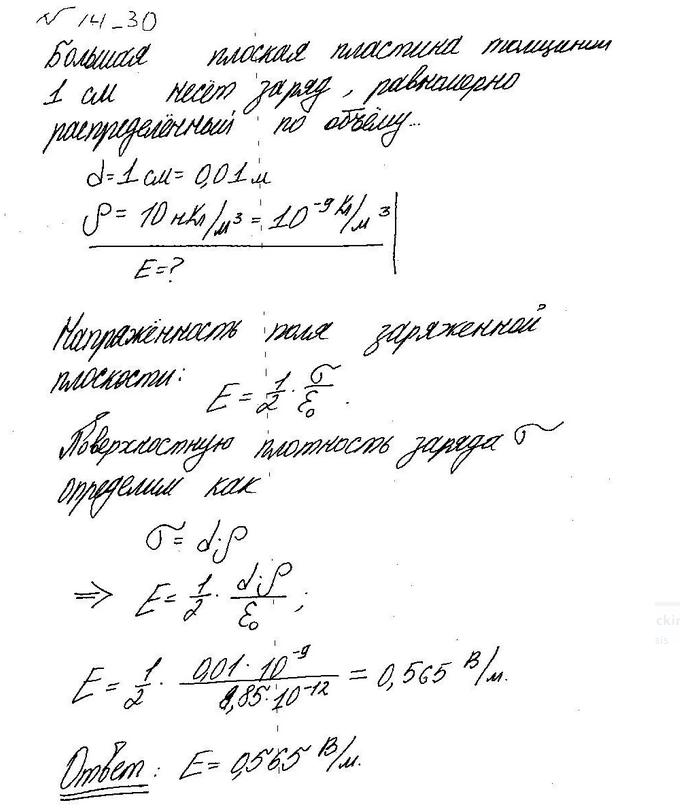 № 14_30
Большая плоская пластина толщиной
1 см несёт заряд, равномерно
распределённый по объёму...
d=1 см= 0,01 м
ρ = 10 нКл/м³ = 10⁻⁹ Кл/м³
E=?
Напряжённость поля заряженной
плоскости:
E = 1/2 · σ/ε₀.
Поверхностную плотность заряда σ
определим как
σ = d·ρ
⇒ E = 1/2 · d·ρ/ε₀;
E = 1/2 · 0,01·10⁻⁹/8,85·10⁻¹² = 0,565 В/м.
Ответ: E = 0,565 В/м.